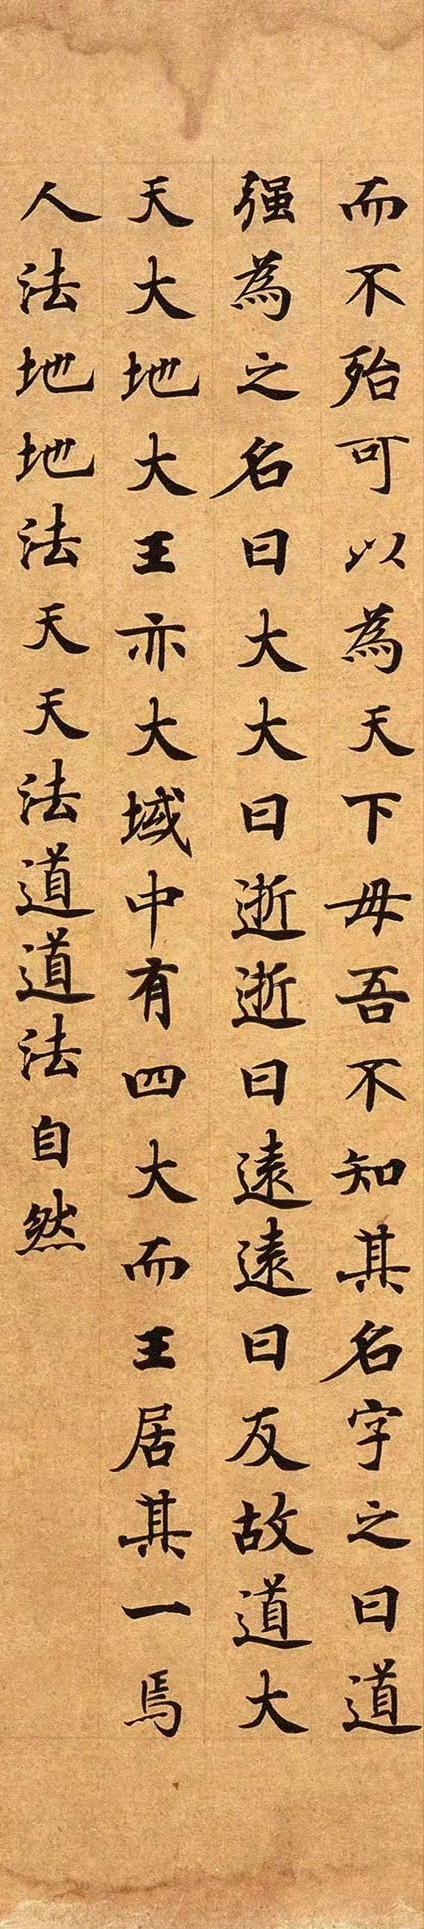 而不殆可以為天下毋吾不知其名字之曰道
强為之名曰大大曰逝逝曰遠遠曰反故道大
天大地大王亦大域中有四大而王居其一焉
人法地地法天天法道道法自然